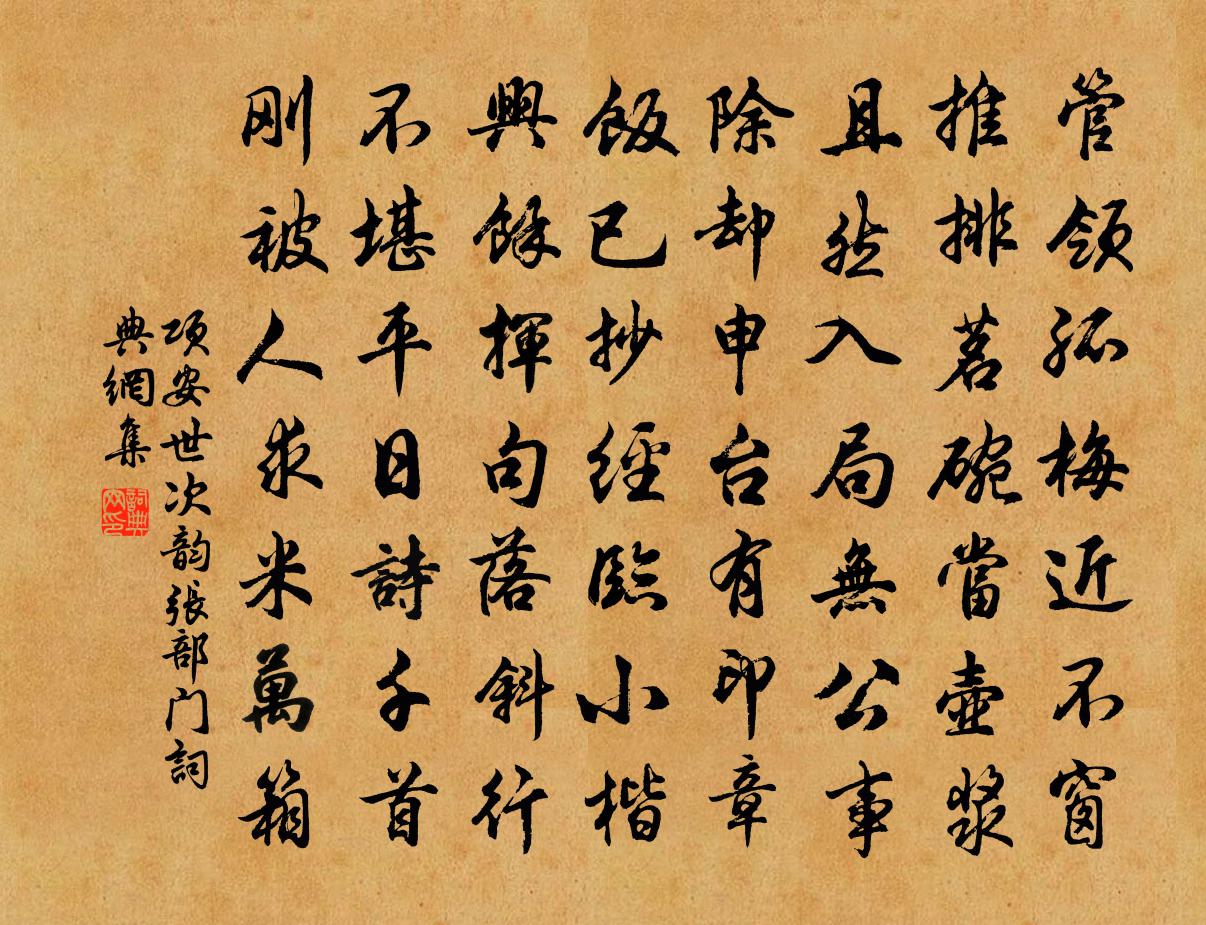 管領孤梅近不窗
推排茗碗當壺漿
且然入局無公事
除却申台有印章
飯已抄經臨小楷
興餘揮句落斜行
不堪平日詩千首
刚被人求米萬箱
项安世次韵張部门詞
典網集
詞典
网印